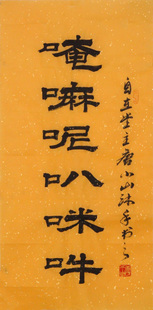 唵嘛呢叭咪吽
自在堂主唐小山沐手书之